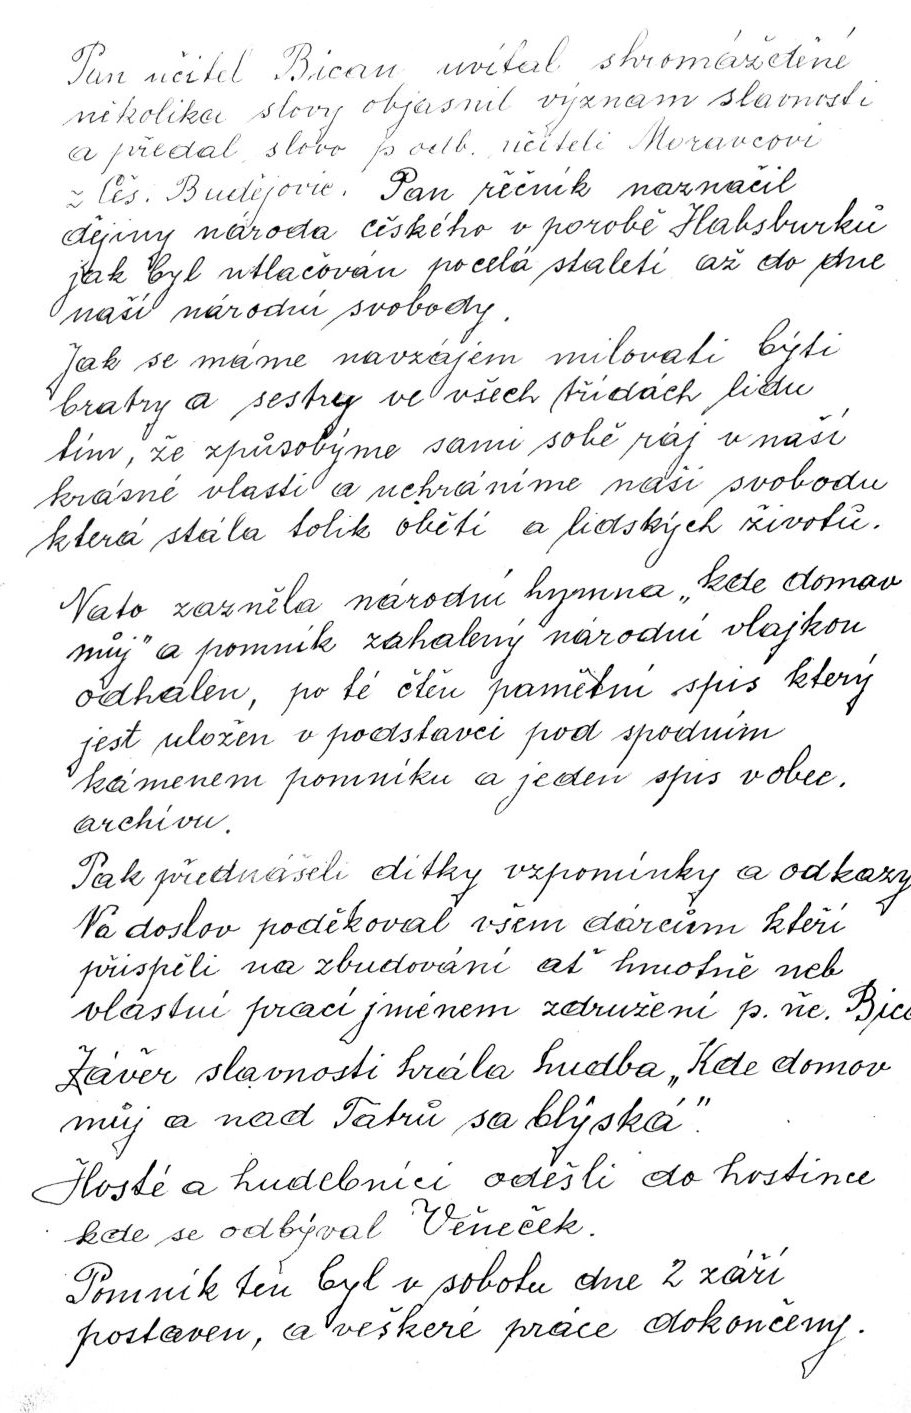 Pan učitel Bican uvítal shromážděné
několika slovy objasnil význam slavnosti
a předal slovo p odb. učiteli Moravcovi
z Čes. Budějovic. Pan řěčník naznačil
dějiny národa českého v porobě Habsburků
jak byl utlačován pocelá staletí až do dne
naší národní svobody.
Jak se máme navzájem milovati býti
bratry a sestry ve všech třídách lidu
tím, že způsobýme sami sobě ráj v naší
krásné vlasti a uchráníme naši svobodu
která stála tolik obětí a lidských životů.
Nato zazněla národní hymna „kde domov
můj" a pomník zahalený národní vlajkou
odhalen, po té čtěn pamětní spis který
jest uložen v podstavci pod spodním
kámenem pomníku a jeden spis v obec.
archívu.
Pak přednášeli dítky vzpomínky a odkazy
Na doslov poděkoval všem dárcům kteří
přispěli na zbudování ať hmotně neb
vlastní prací jménem združení p. uč. Bica
Závěr slavnosti hrála hudba „Kde domov
můj a nad Tatrů sa blýská".
Hosté a hudebníci odešli do hostince
kde se odbýval Věneček.
Pomník ten byl v sobotu dne 2 září
postaven, a veškeré práce dokončeny.